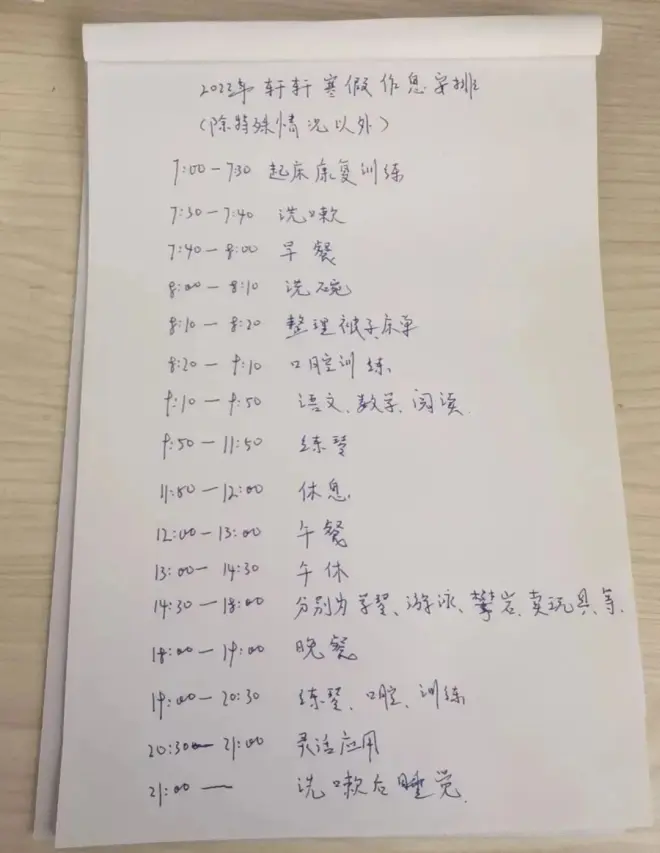 2023年轩轩寒假作息安排
(除特殊情况以外)
7:00-7:30 起床康复训练
7:30-7:40 洗漱
7:40-8:00 早餐
8:00-8:10 洗碗
8:10-8:20 整理被子、床单
8:20-9:10 口腔训练
9:10-9:50 语文、数学、阅读
9:50-11:50 练琴
11:50-12:00 休息
12:00-13:00 午餐
13:00-14:30 午休
14:30-18:00 分别为学习、游泳、攀岩、卖玩具等.
18:00-19:00 晚餐
19:00-20:30 练琴、口腔、训练
20:30-21:00 灵活应用
21:00- 洗漱后睡觉